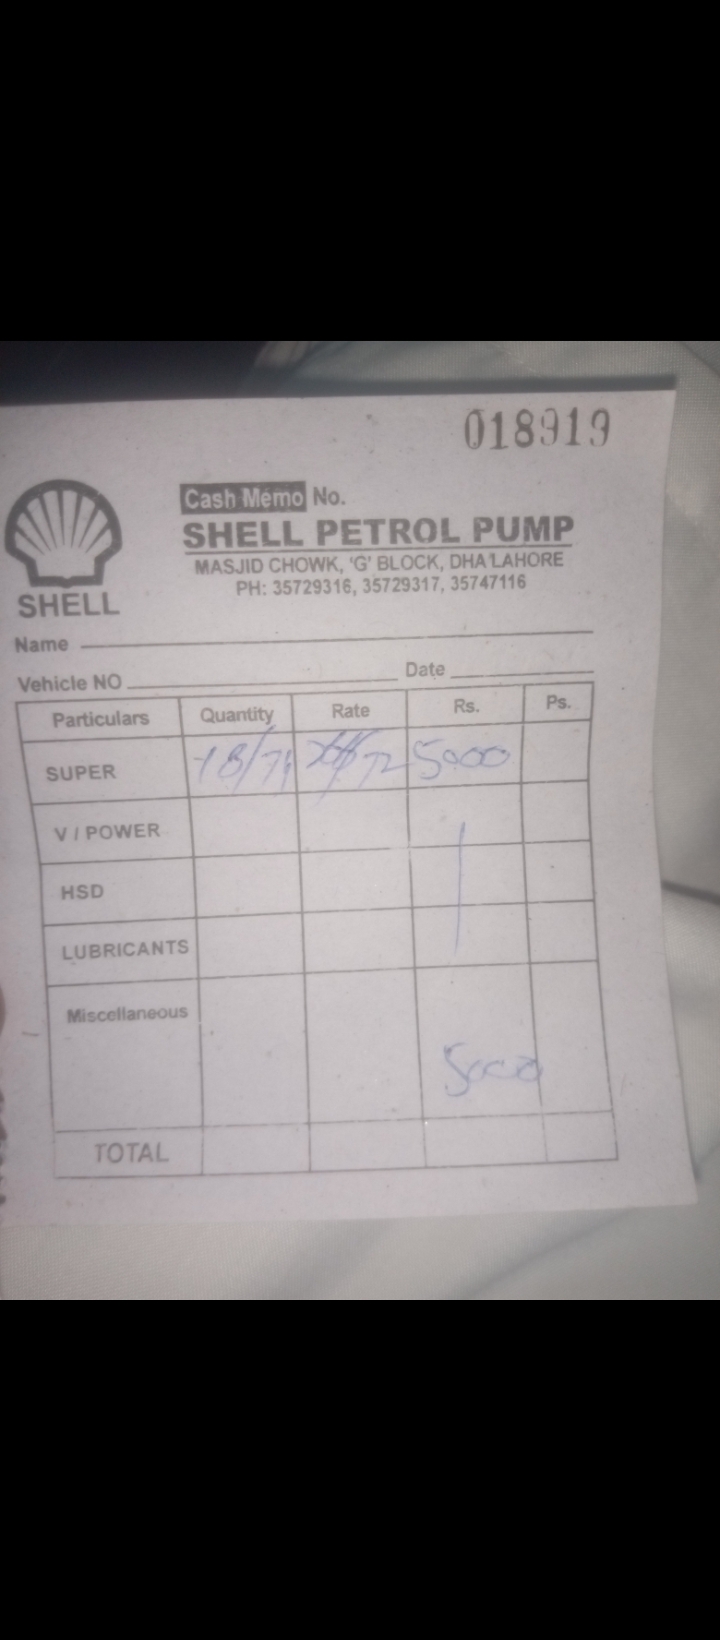 018919
Cash Memo No.
SHELL PETROL PUMP
MASJID CHOWK, 'G' BLOCK, DHA LAHORE
PH: 35729316, 35729317, 35747116
SHELL
Name
Vehicle NO Date
Particulars Quantity Rate Rs. Ps.
SUPER 5000
V / POWER
HSD
LUBRICANTS
Miscellaneous
5000
TOTAL